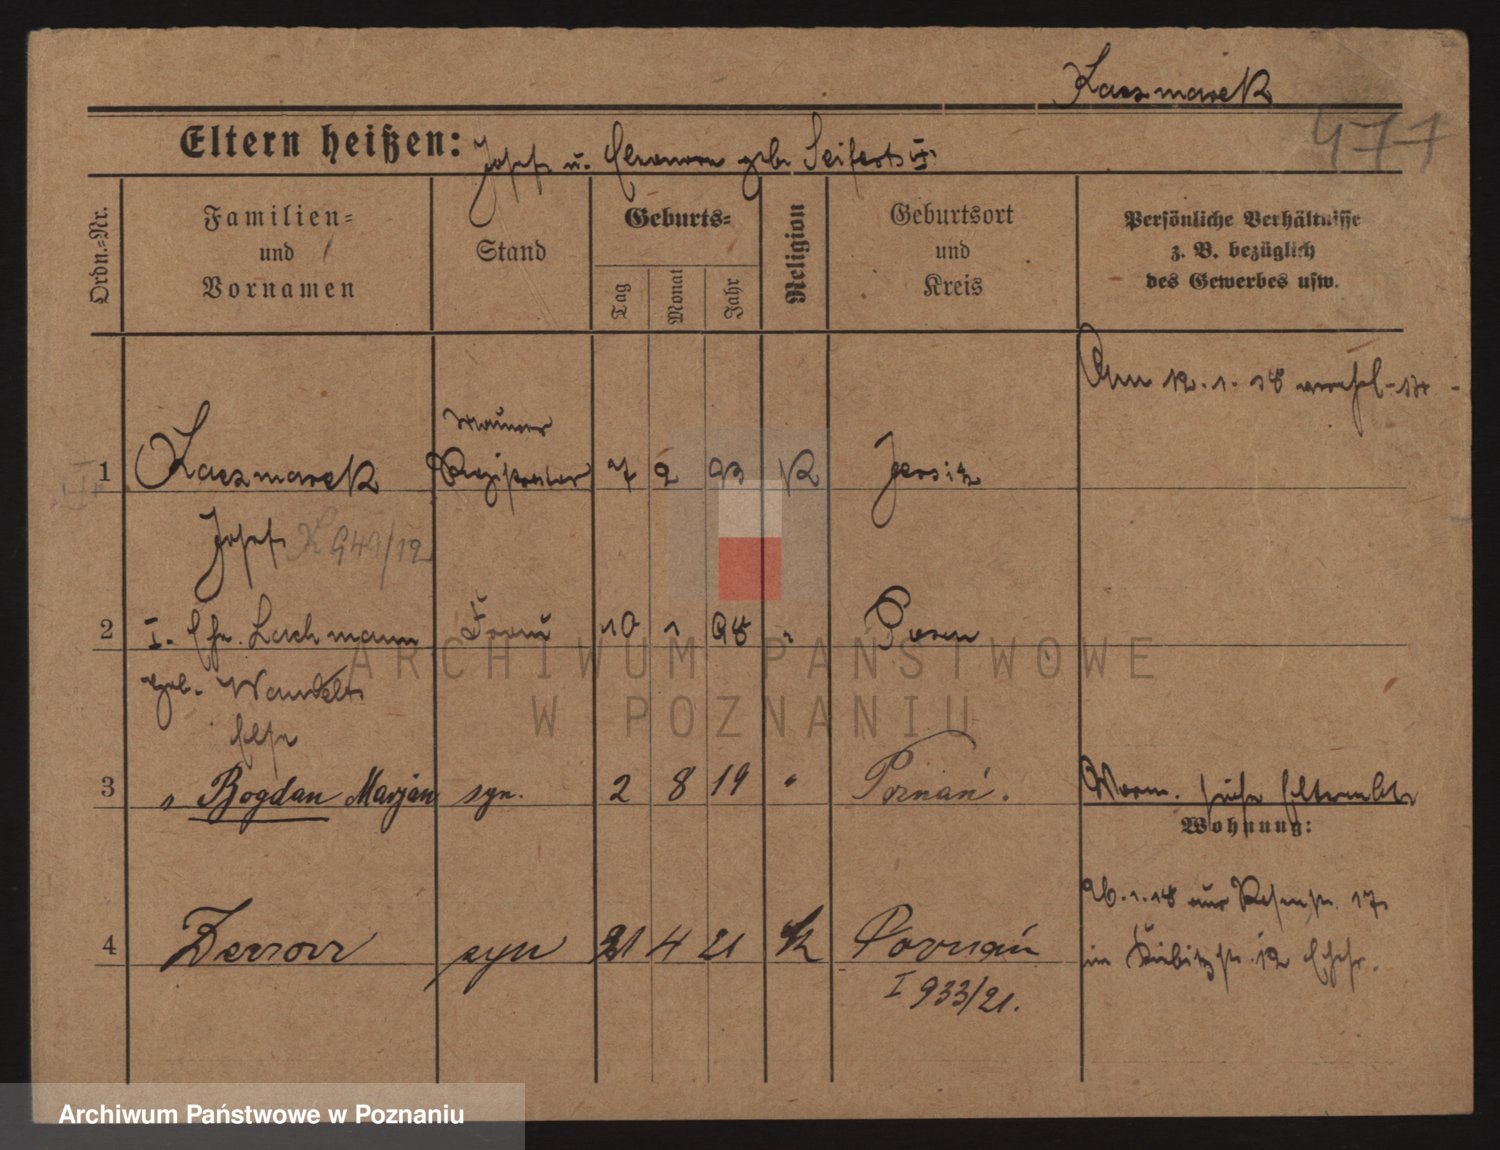 Kaczmarek
477
Eltern heißen: Josef u. Eleonora geb. Seifert
Ordn.-Nr.
Familien=
und
Vornamen
Stand
Geburts=
Tag
Monat
Jahr
Religion
Geburtsort
und
Kreis
Persönliche Verhältnisse
z. B. bezüglich
des Gewerbes usw.
Am 12. 1. 18
Maurer
1 Kaczmarek 7 2 93 K Jersitz
Josef K 941/12
2 I. Ehe. Lachmann Frau 10 1 98 " Posen
geb. Wandelt
Else
3 " Bogdan Marjan syn. 2 8 19 " Poznań. Worm. siehe
Wohnung:
26.1.18 17
4 Zenon syn 21 4 21 K Poznań
12 Ehefr.
I 933/21.
ARCHIWUM PAŃSTWOWE
W POZNANIU
Archiwum Państwowe w Poznaniu